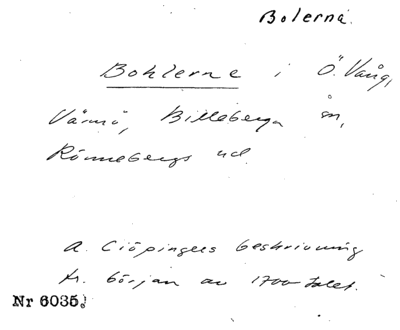 Bolerna.
Bohlerne i Ö. Vång,
Värmö, Billeberga sn,
Rönnebergs hd.
A. Ciöpingers beskrivning
fr. början av 1700 talet.
Nr 6035.